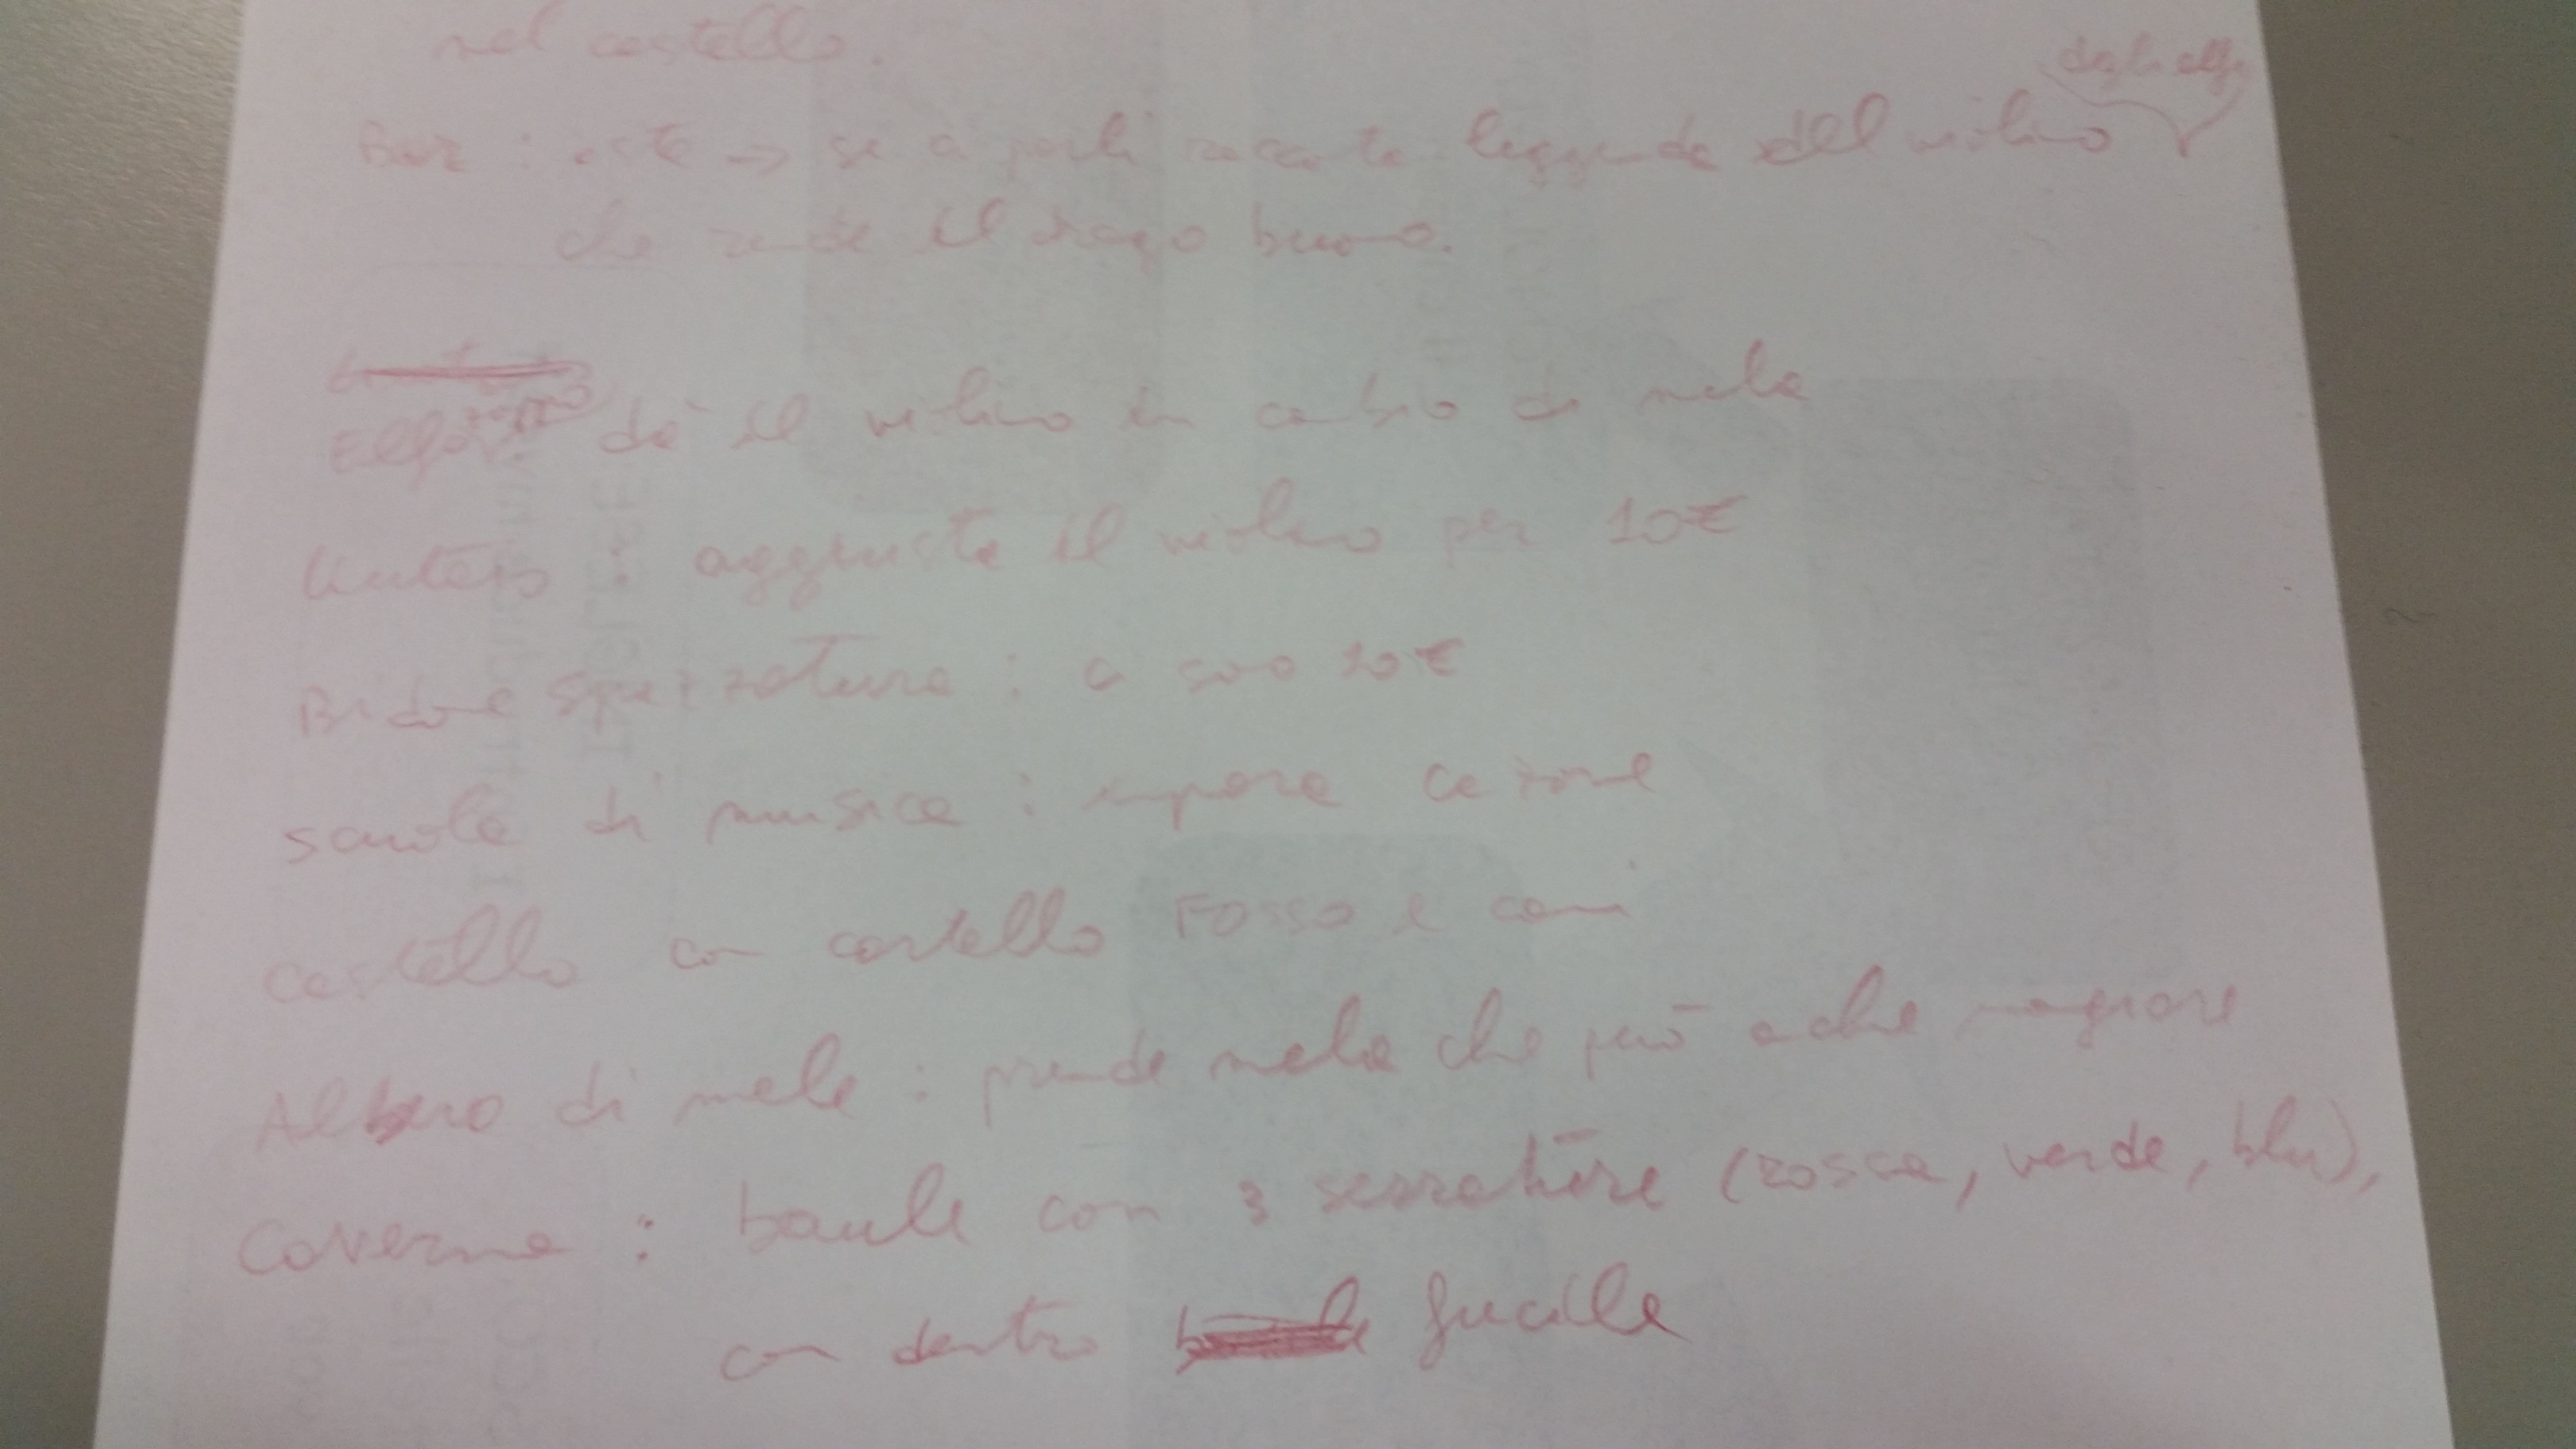 nel castello.
Bar : oste → se ci parli racconta leggenda del violino degli elfi
che rende il drago buono.
Elfo zoppo : dà il violino in cambio di mela
Liutaio : aggiusta il violino per 10€
Bidone spazzatura : ci sono 10€
scuola di musica : impara canzone
Castello con cartello Fosso e cani
Albero di mele : prende mela che può anche mangiare
Caverna : baule con 3 serrature (rossa, verde, blu),
con dentro fucile